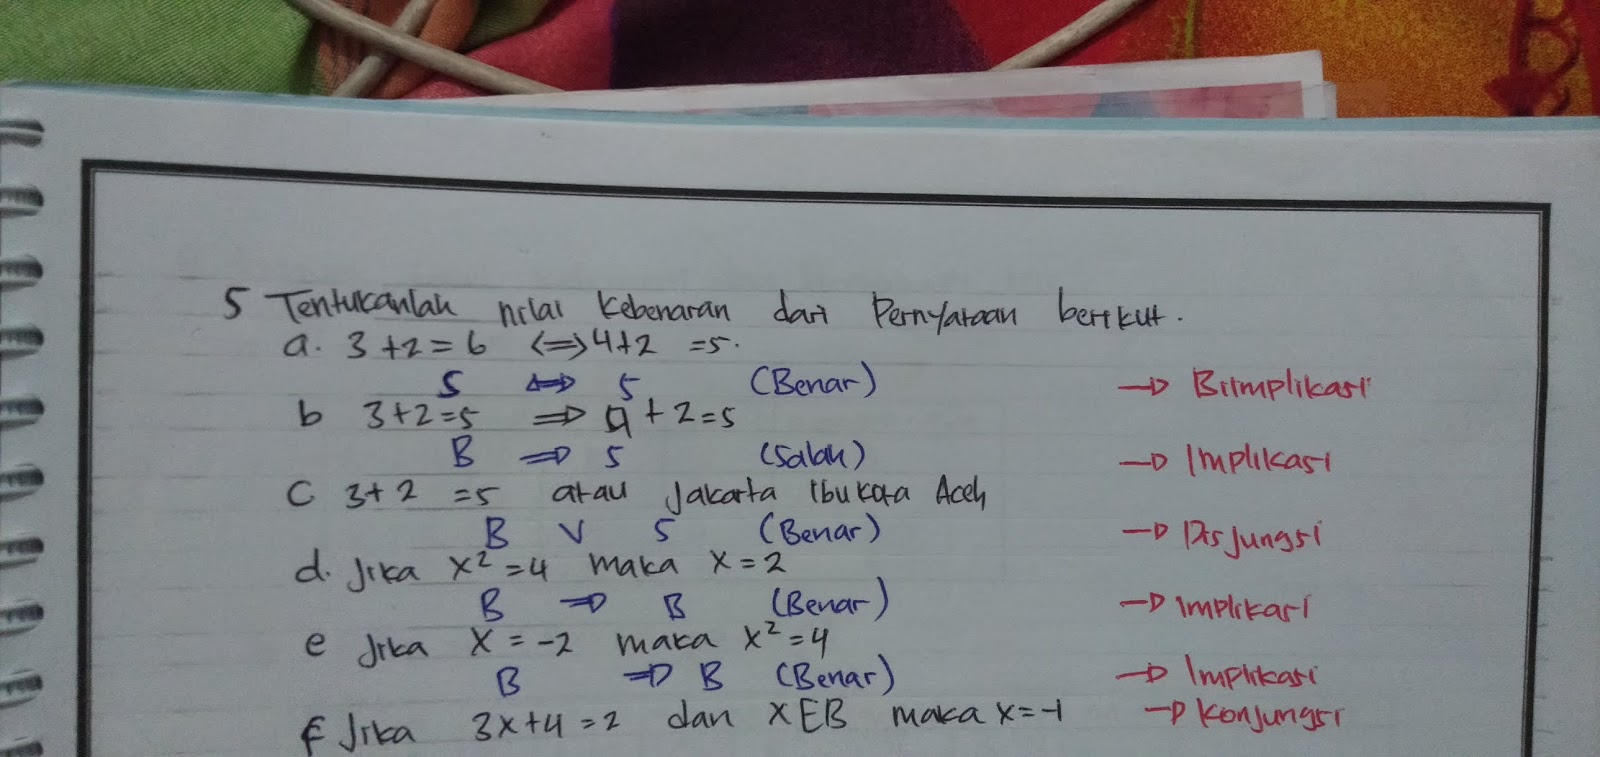 5 Tentukanlah nilai kebenaran dari Pernyataan berikut.
a. 3+2=6 <=> 4+2 =5.
S <=> S (Benar) → Biimplikasi
b 3+2=5 => 4+2=5
B => S (Salah) → Implikasi
c 3+2 =5 atau Jakarta ibukota Aceh
B V S (Benar) → Disjungsi
d. Jika x²=4 maka x=2
B => B (Benar) → implikasi
e Jika x=-2 maka x²=4
B => B (Benar) → Implikasi
f Jika 3x+4=2 dan xEB maka x=-1 → Konjungsi